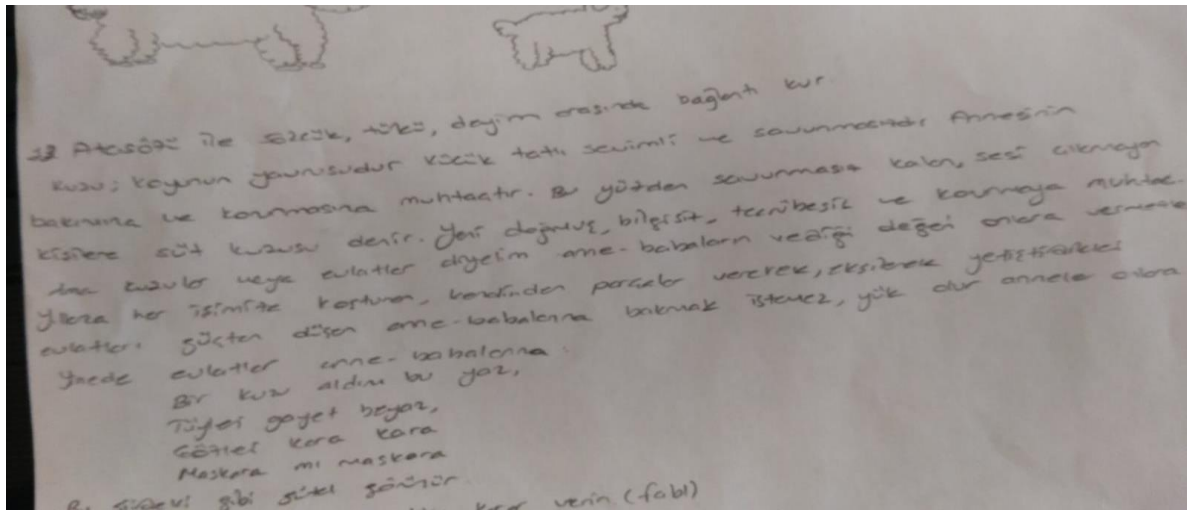 Atasözü ile sözcük, türkü, deyim arasında bağlantı kur.
Kuzu; koyunun yavrusudur küçük tatlı sevimli ve savunmasızdır Annesinin
bakımına ve korumasına muhtaçtır. Bu yüzden savunmasız kalan, sesi çıkmayan
kişilere süt kuzusu denir. Yeni doğmuş, bilgisiz, tecrübesiz ve korumaya muhtaç.
Ama kuzular veya evlatlar diyelim anne-babaların verdiği değeri onlara vermezler
her işimize koşturan, kendinden parçalar vererek, eksilerek yetiştirdikleri
evlatları güçten düşen anne-babalarına bakmak istemez, yük olur anneler onlara
Yinede evlatlar anne-babalarına
Bir kuzu aldım bu yaz,
Tüyleri gayet beyaz,
Gözleri kara kara
Maskara mı maskara
gibi güzel görünür
verin (fabl)